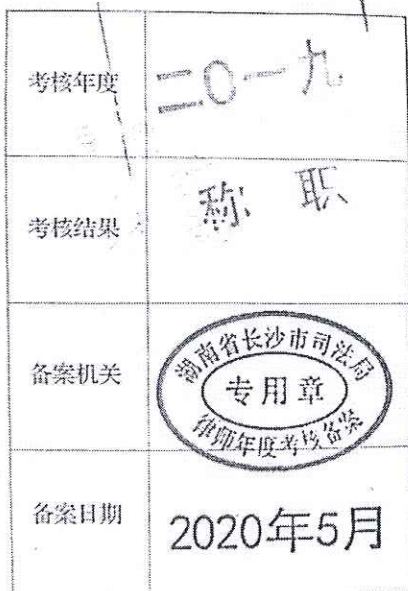 考核年度
二〇一九
考核结果
称职
备案机关
湖南省长沙市司法局
专用章
律师年度考核备案
备案日期
2020年5月